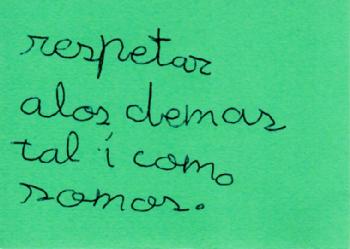 respetar
alos demas
tal í como
somos.